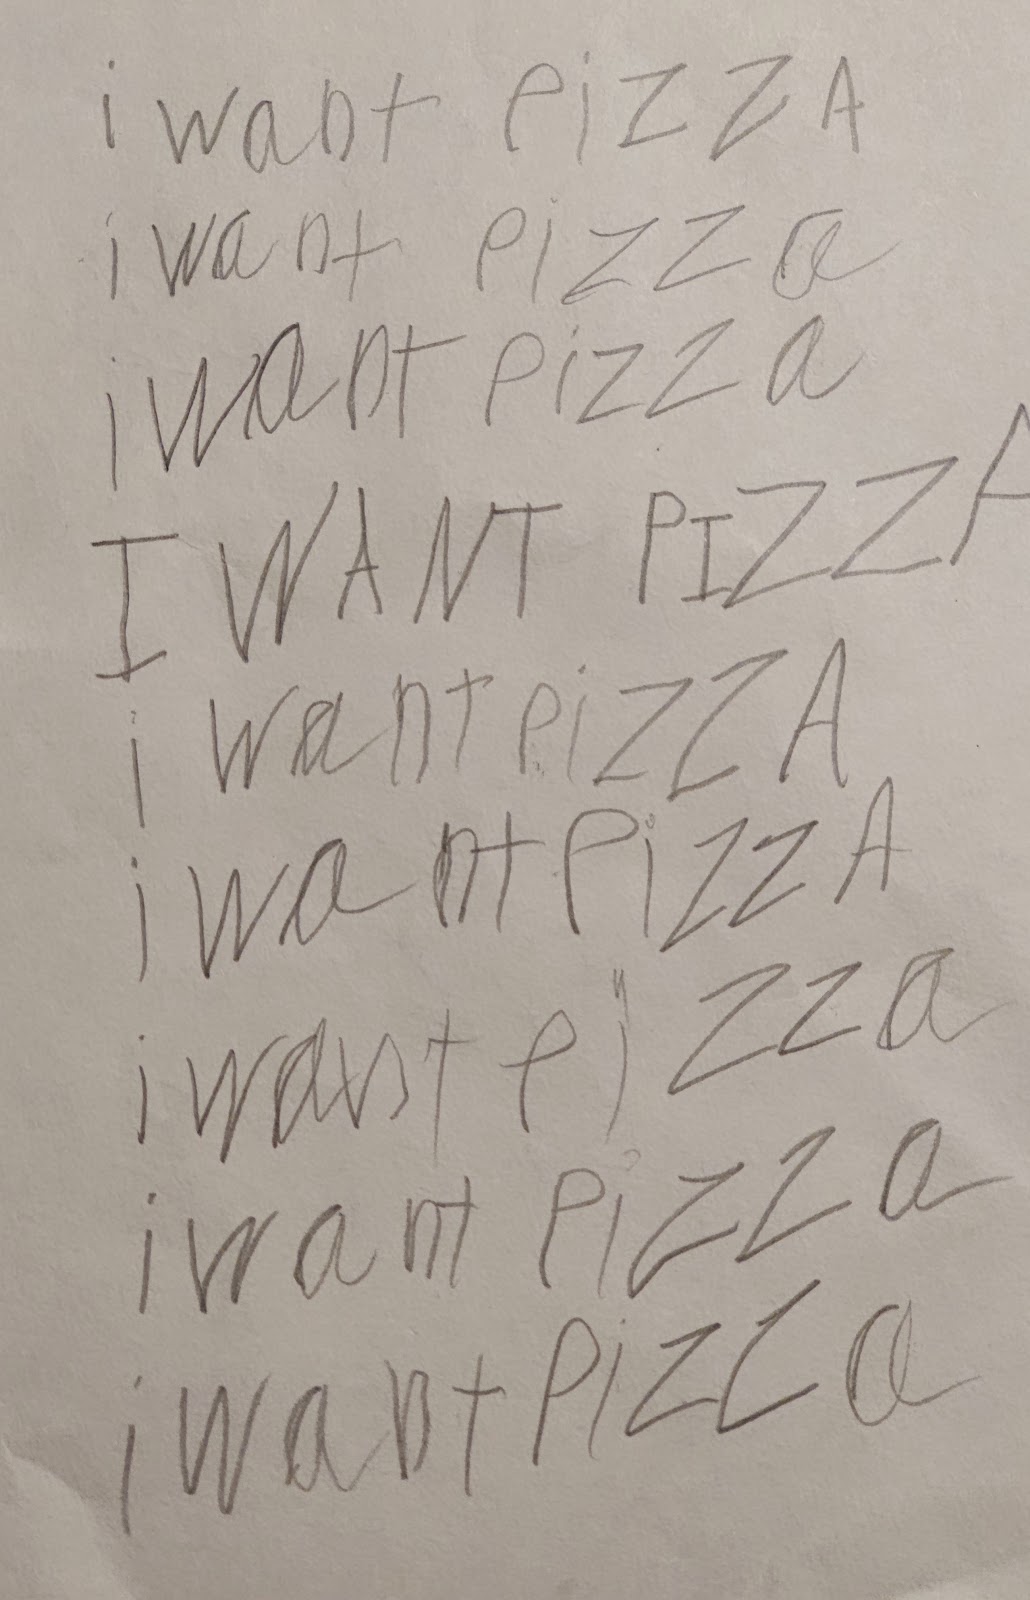 i want PizzA
i want pizza
i want pizza
I WANT PIZZA
i want pizzA
i want PizzA
i want pizza
i want Pizza
i want Pizza